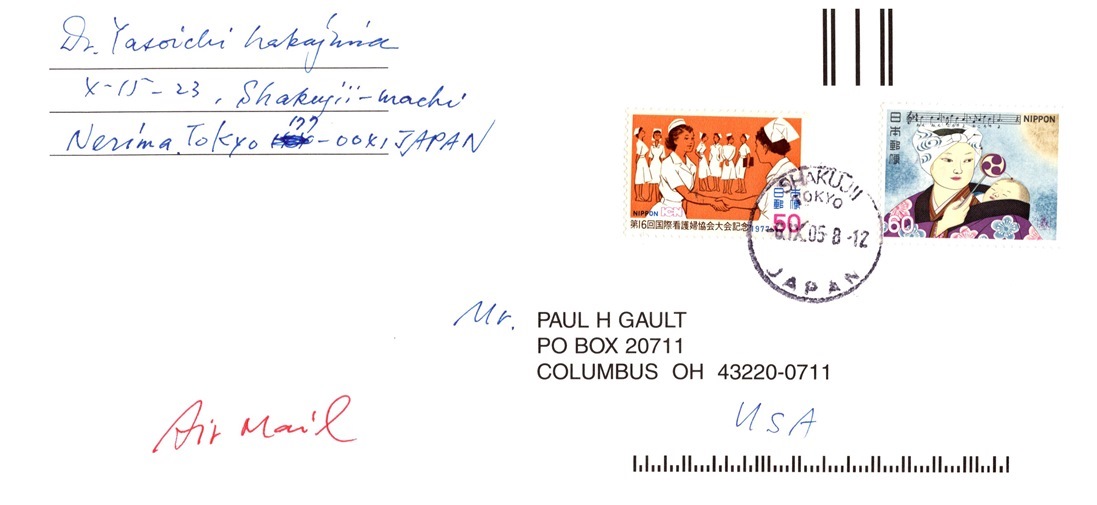 Dr. Yasoichi Nakajima
X-15-23, Shakujii-machi
Nerima, Tokyo 177-00X1 JAPAN
NIPPON ICN
日本郵便
50
第16回国際看護婦協会大会記念 1977
日本郵便
NIPPON
60
SHAKUJII
TOKYO
.IX.05 8-12
JAPAN
Mr. PAUL H GAULT
PO BOX 20711
COLUMBUS OH 43220-0711
USA
Air Mail